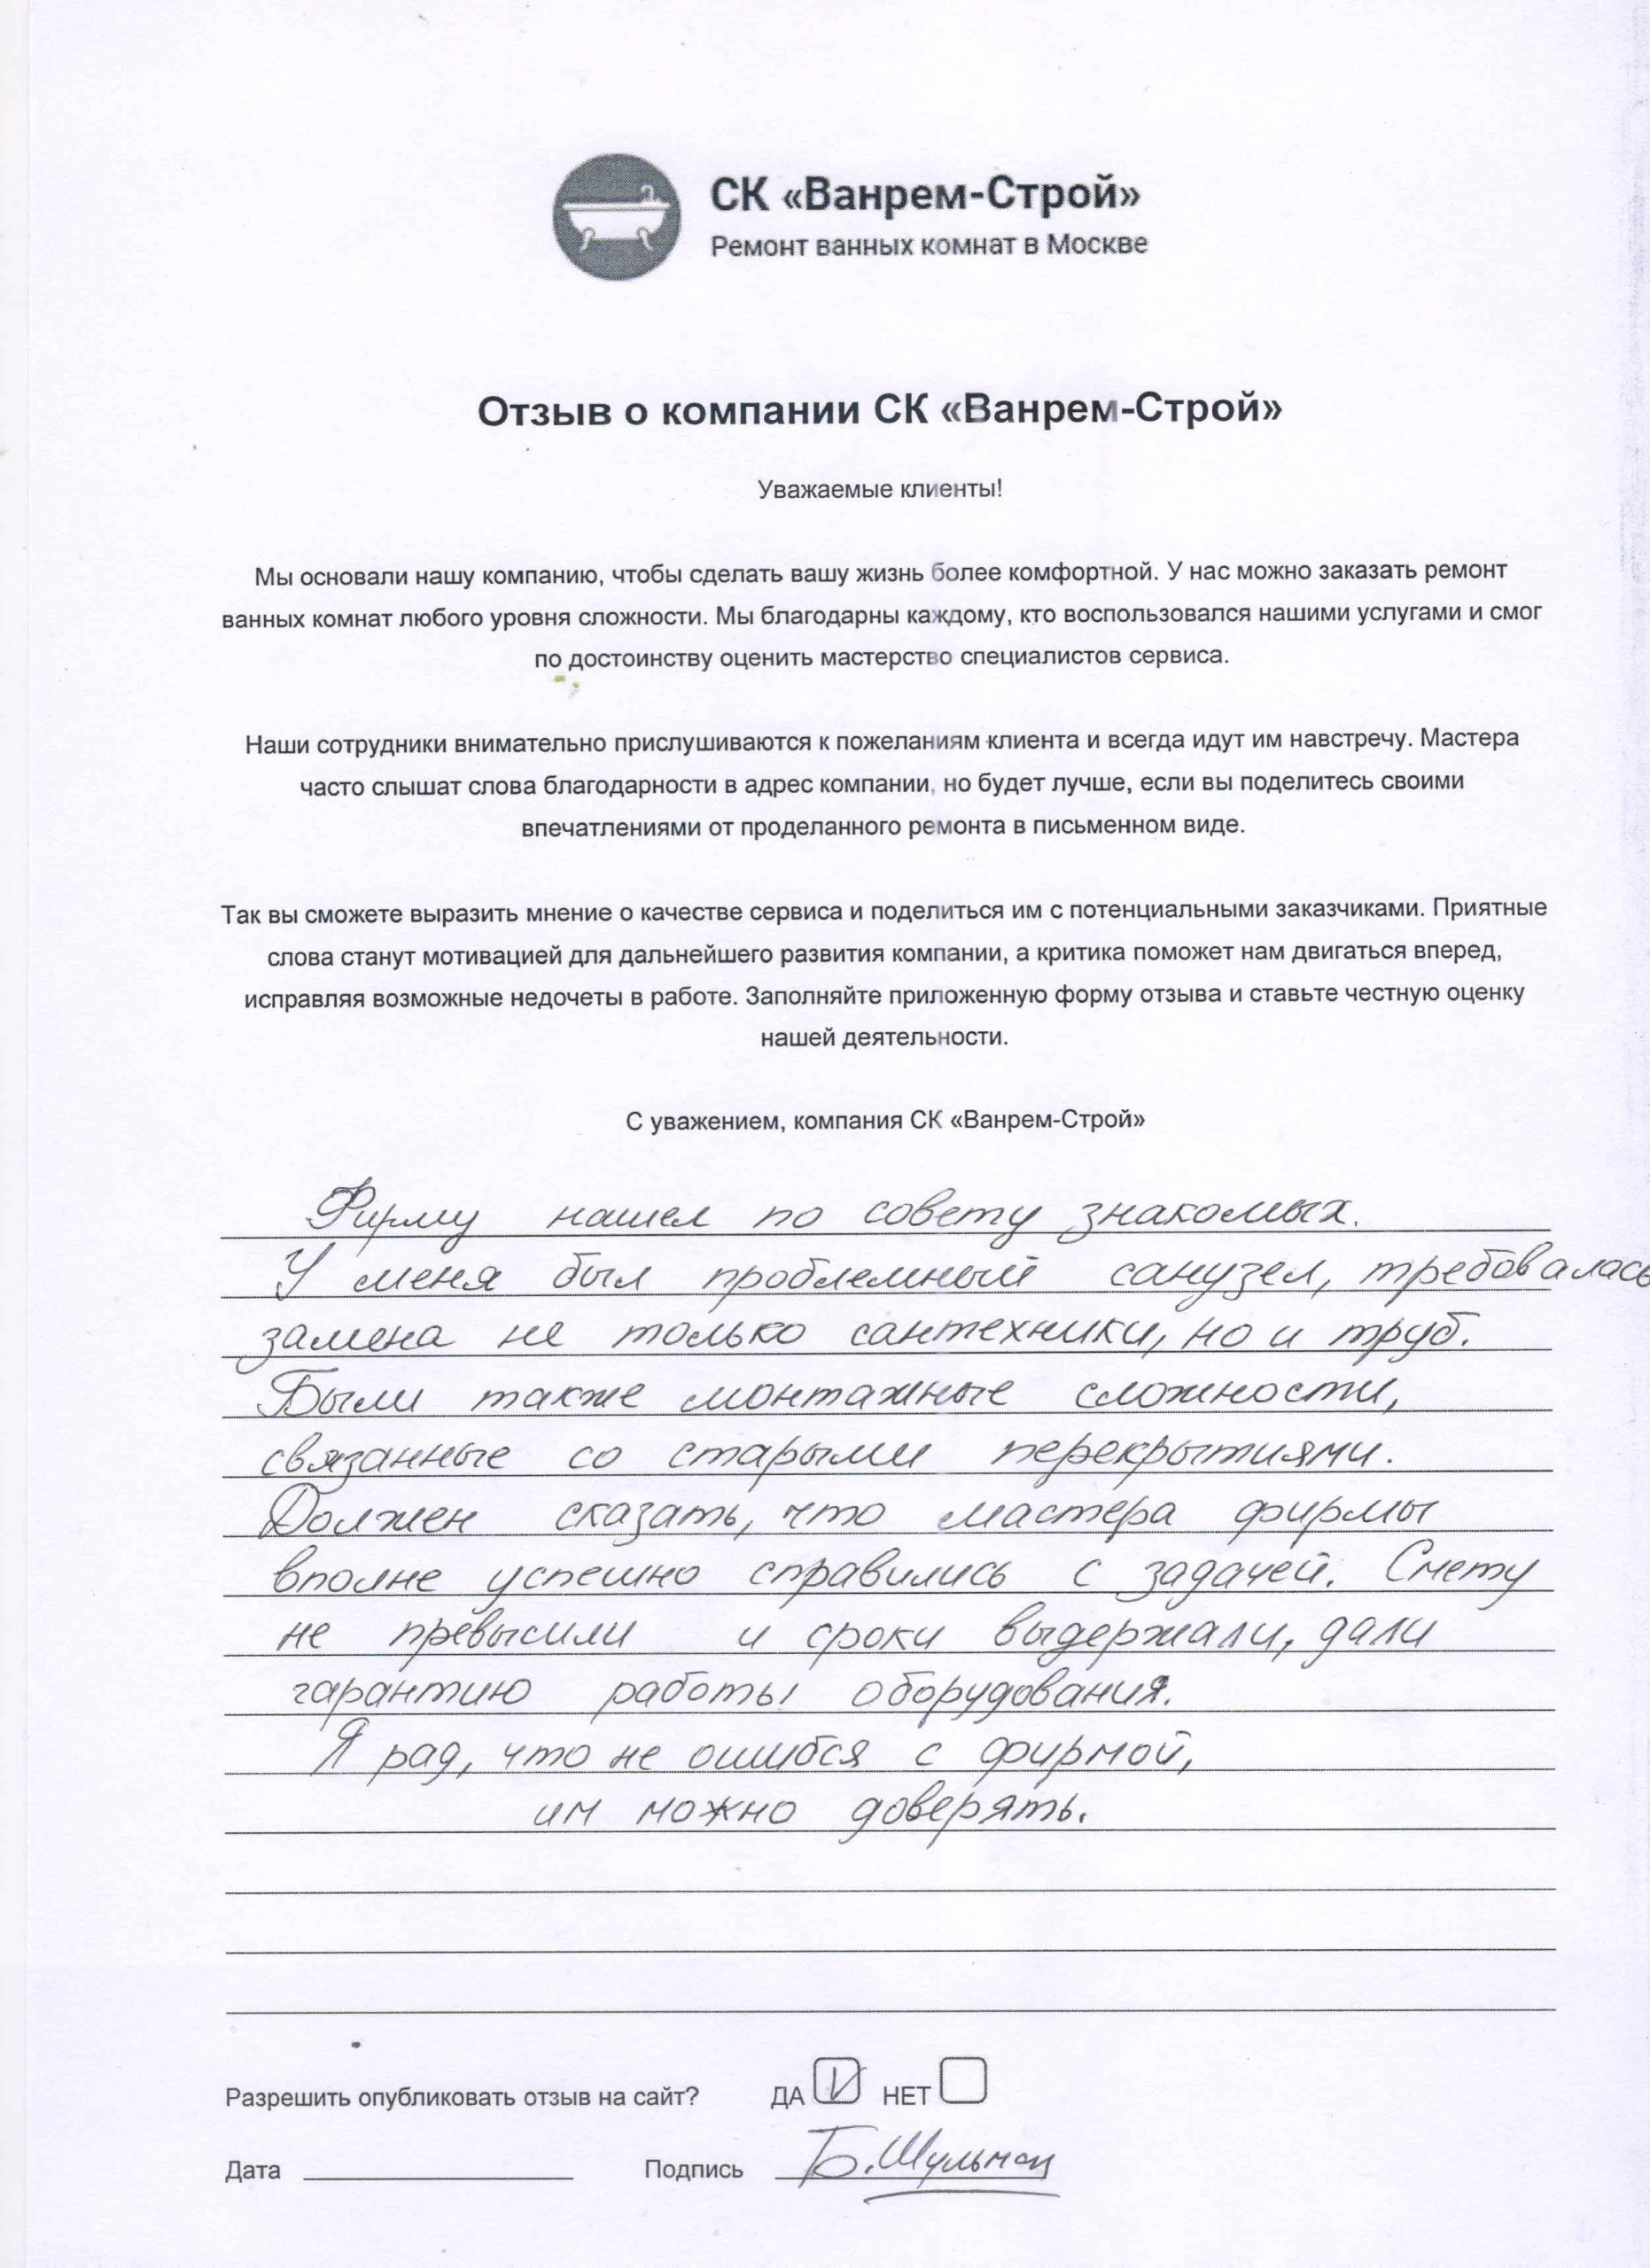 СК «Ванрем-Строй»
Ремонт ванных комнат в Москве
Отзыв о компании СК «Ванрем-Строй»
Уважаемые клиенты!
Мы основали нашу компанию, чтобы сделать вашу жизнь более комфортной. У нас можно заказать ремонт
ванных комнат любого уровня сложности. Мы благодарны каждому, кто воспользовался нашими услугами и смог
по достоинству оценить мастерство специалистов сервиса.
Наши сотрудники внимательно прислушиваются к пожеланиям клиента и всегда идут им навстречу. Мастера
часто слышат слова благодарности в адрес компании, но будет лучше, если вы поделитесь своими
впечатлениями от проделанного ремонта в письменном виде.
Так вы сможете выразить мнение о качестве сервиса и поделиться им с потенциальными заказчиками. Приятные
слова станут мотивацией для дальнейшего развития компании, а критика поможет нам двигаться вперед,
исправляя возможные недочеты в работе. Заполняйте приложенную форму отзыва и ставьте честную оценку
нашей деятельности.
С уважением, компания СК «Ванрем-Строй»
Фирму нашел по совету знакомых.
У меня был проблемный санузел, требовалась
замена не только сантехники, но и труб.
Были также монтажные сложности,
связанные со старыми перекрытиями.
Должен сказать, что мастера фирмы
вполне успешно справились с задачей. Смету
не превысили и сроки выдержали, дали
гарантию работы оборудования.
Я рад, что не ошибся с фирмой,
им можно доверять.
Разрешить опубликовать отзыв на сайт? ДА V НЕТ
Дата Подпись Б. Шульман